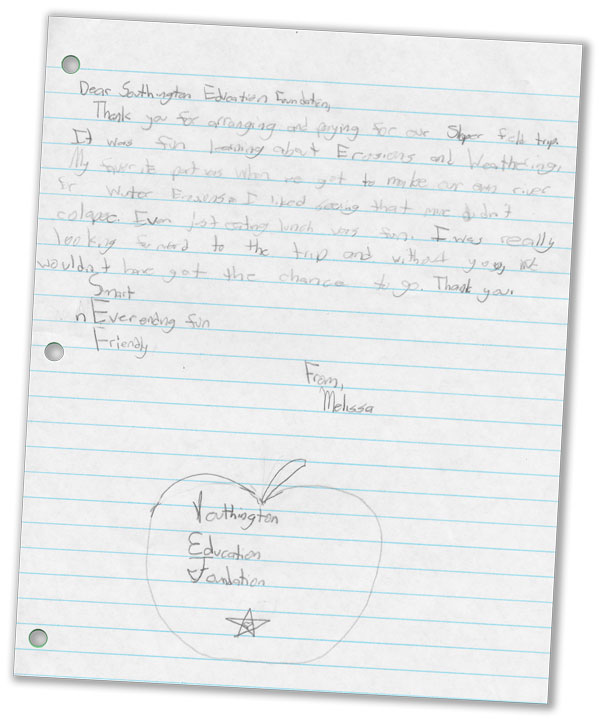 Dear Southington Education Foundation,
Thank you for arranging and paying for our field trip.
It was fun learning about Erosions and Weathering.
My favorite part was when we got to make our own river
for Water Erosion. I liked seeing that one didn't
colapse. Even just eating lunch was fun. I was really
looking forward to the trip and without you,
wouldn't have got the chance to go. Thank you.
Smart
nEverending fun
Friendly
From,
Melissa
Southington
Education
Foundation